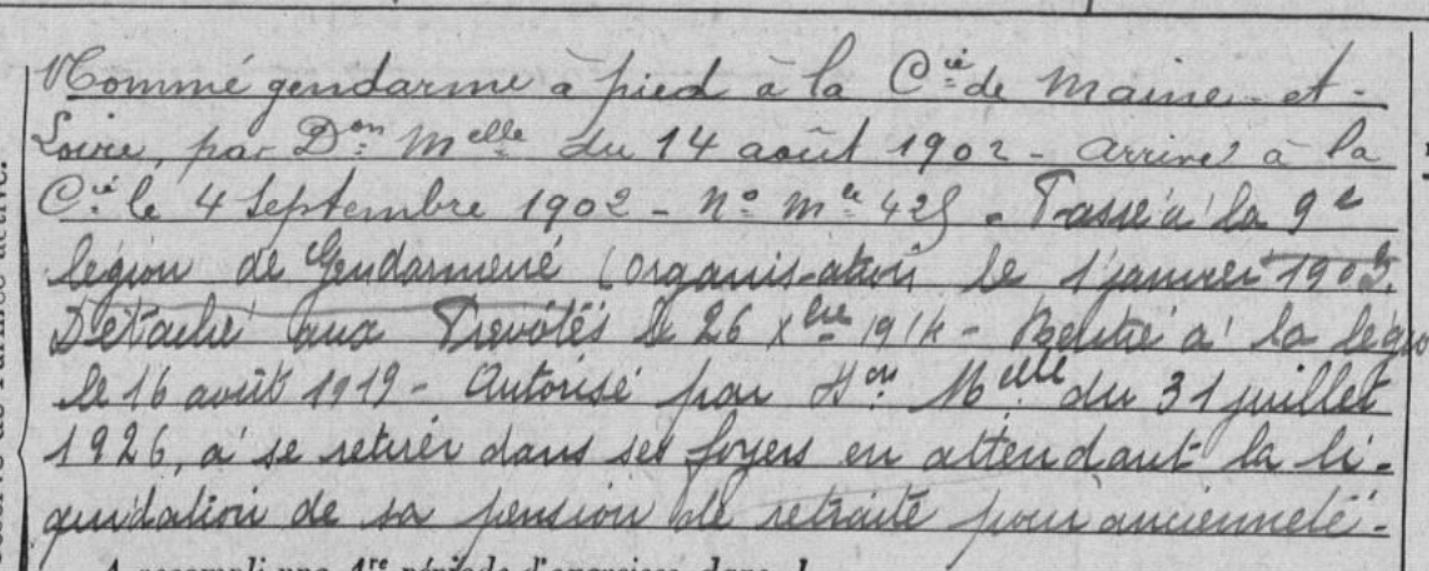 Nommé gendarme à pied à la Cie de Maine-et-
Loire, par Don Melle du 14 août 1902 - Arrivé à la
Cie le 4 Septembre 1902 - No Mle 425 - Passé à la 9e
légion de Gendarmerie (organisation le 1 janvier 1903.
Détaché aux Prévôtés le 26 xbre 1914 - Rentré à la légion
le 16 août 1919 - Autorisé par Don Melle du 31 juillet
1926, à se retirer dans ses foyers en attendant la li-
quidation de sa pension de retraite pour ancienneté -
A accompli une 1re période d'exercices dans l
réserve de l'armée active.